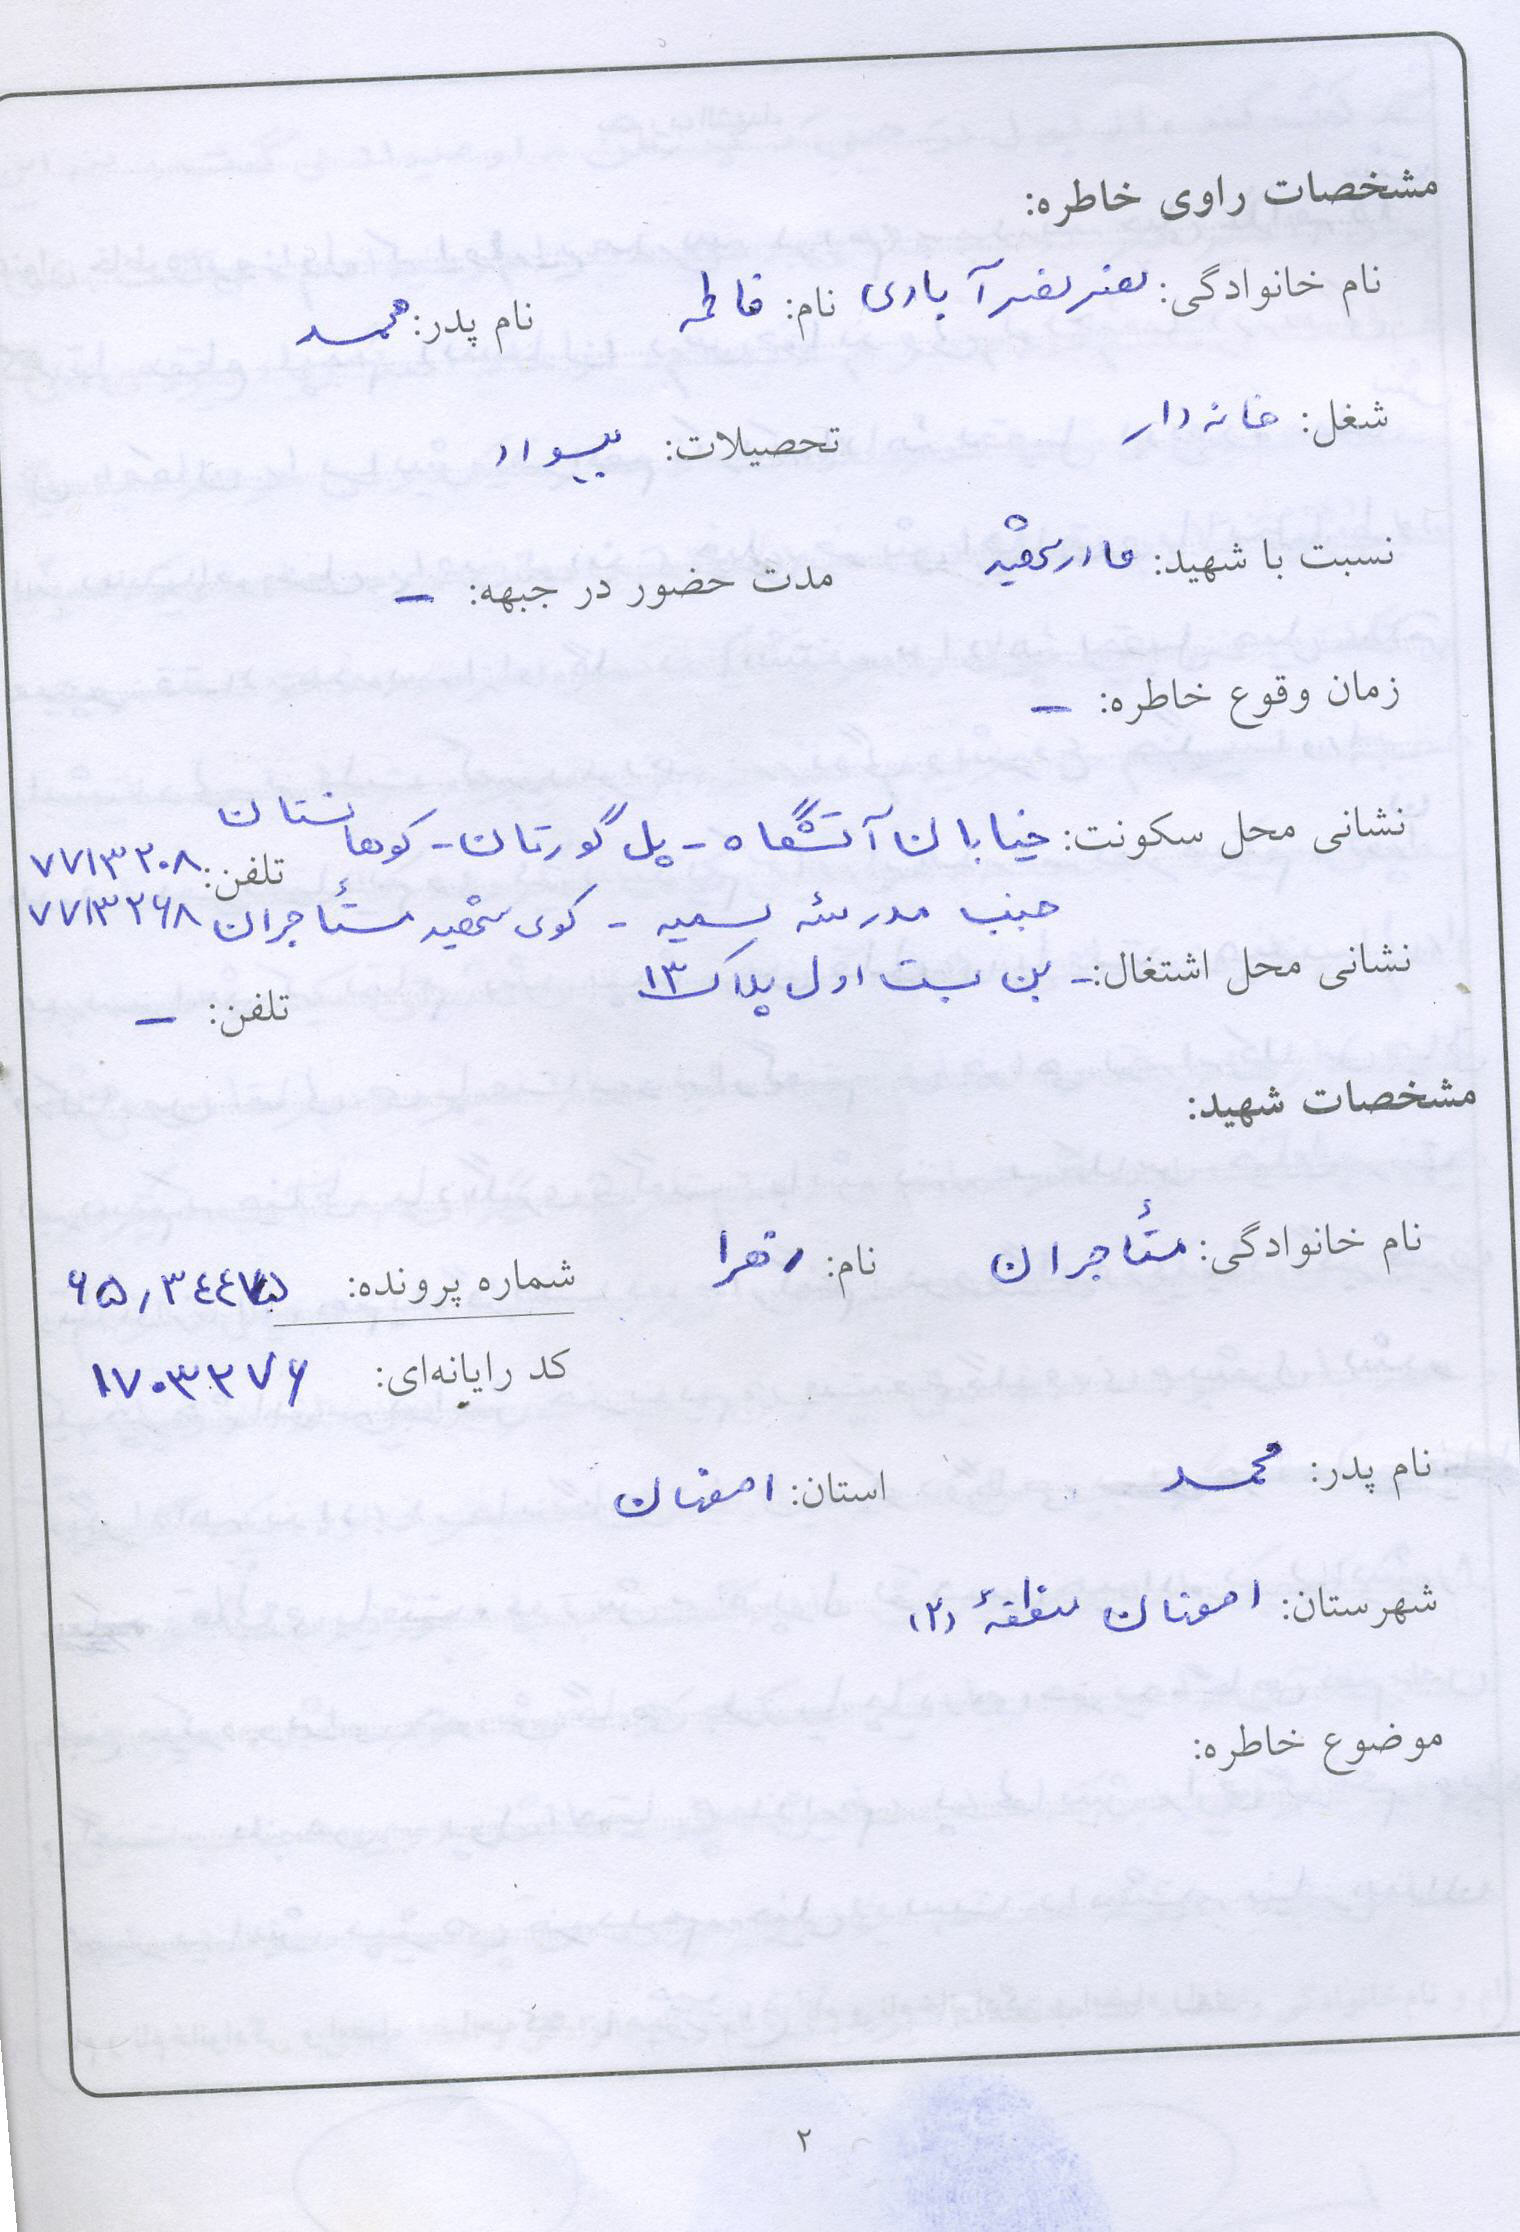 مشخصات راوی خاطره:
نام خانوادگی: نصر نصرآبادی نام: فاطمه نام پدر: محمد
شغل: خانه‌دار تحصیلات: بیسواد
نسبت با شهید: مادر شهید مدت حضور در جبهه: –
زمان وقوع خاطره: –
نشانی محل سکونت: خیابان آتشگاه - پل گورتان - کوهانستان تلفن: ۷۷۱۳۲۰۸
جنب مدرسه سمیه - کوی شهید مستأجران ۷۷۱۳۲۶۸
بن بست اول پلاک ۱۳
نشانی محل اشتغال: – تلفن: –
مشخصات شهید:
نام خانوادگی: مستأجران نام: زهرا شماره پرونده:
کد رایانه‌ای: ۱۷۰۳۲۷۶
نام پدر: محمد استان: اصفهان
شهرستان: اصفهان منطقهٔ (۲)
موضوع خاطره:
۲